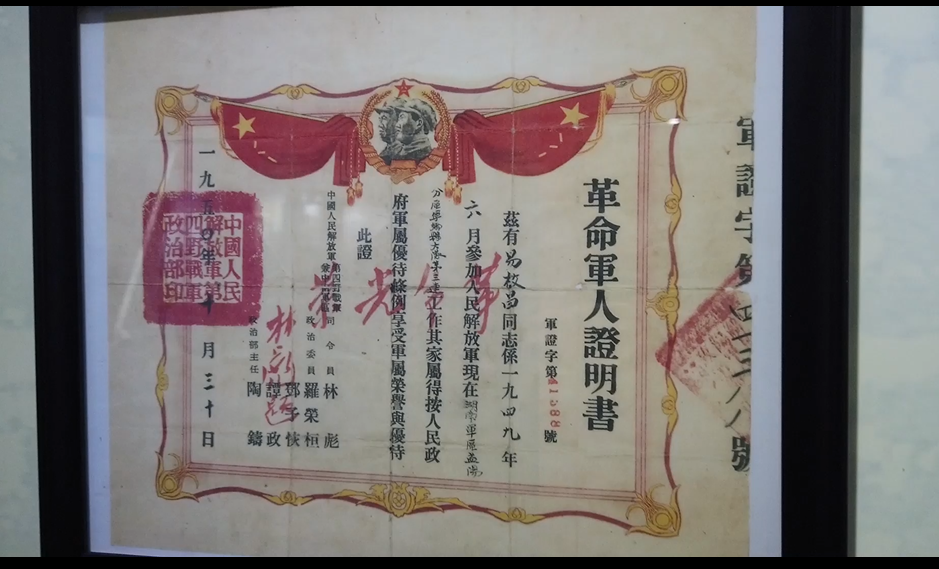 軍證字第四一三八八號
革命軍人證明書
軍證字第41388號
茲有易枚昌同志係一九四九年
六月參加人民解放軍現在湖南軍區益陽
分區寧鄉縣大隊第三連工作其家屬得按人民政
府軍屬優待條例享受軍屬榮譽與優待
此證
革命光榮
中國人民解放軍第四野戰軍
兼中南軍區
司令員 林彪
政治委員 羅榮桓
鄧子恢
譚政
政治部主任 陶鑄
一九五〇年十月三十日
中國人民
解放軍第
四野戰軍
政治部印